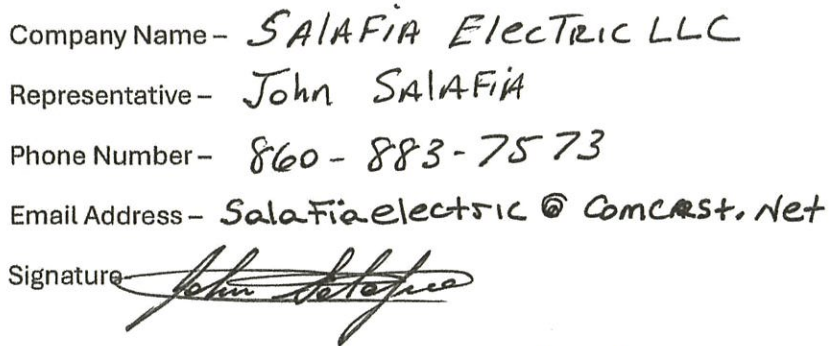 Company Name – SAlAFiA ElecTRic LLC
Representative – John SAlAFiA
Phone Number – 860-883-7573
Email Address – SalaFiaelectric @ Comcast. Net
Signature- John Salafia